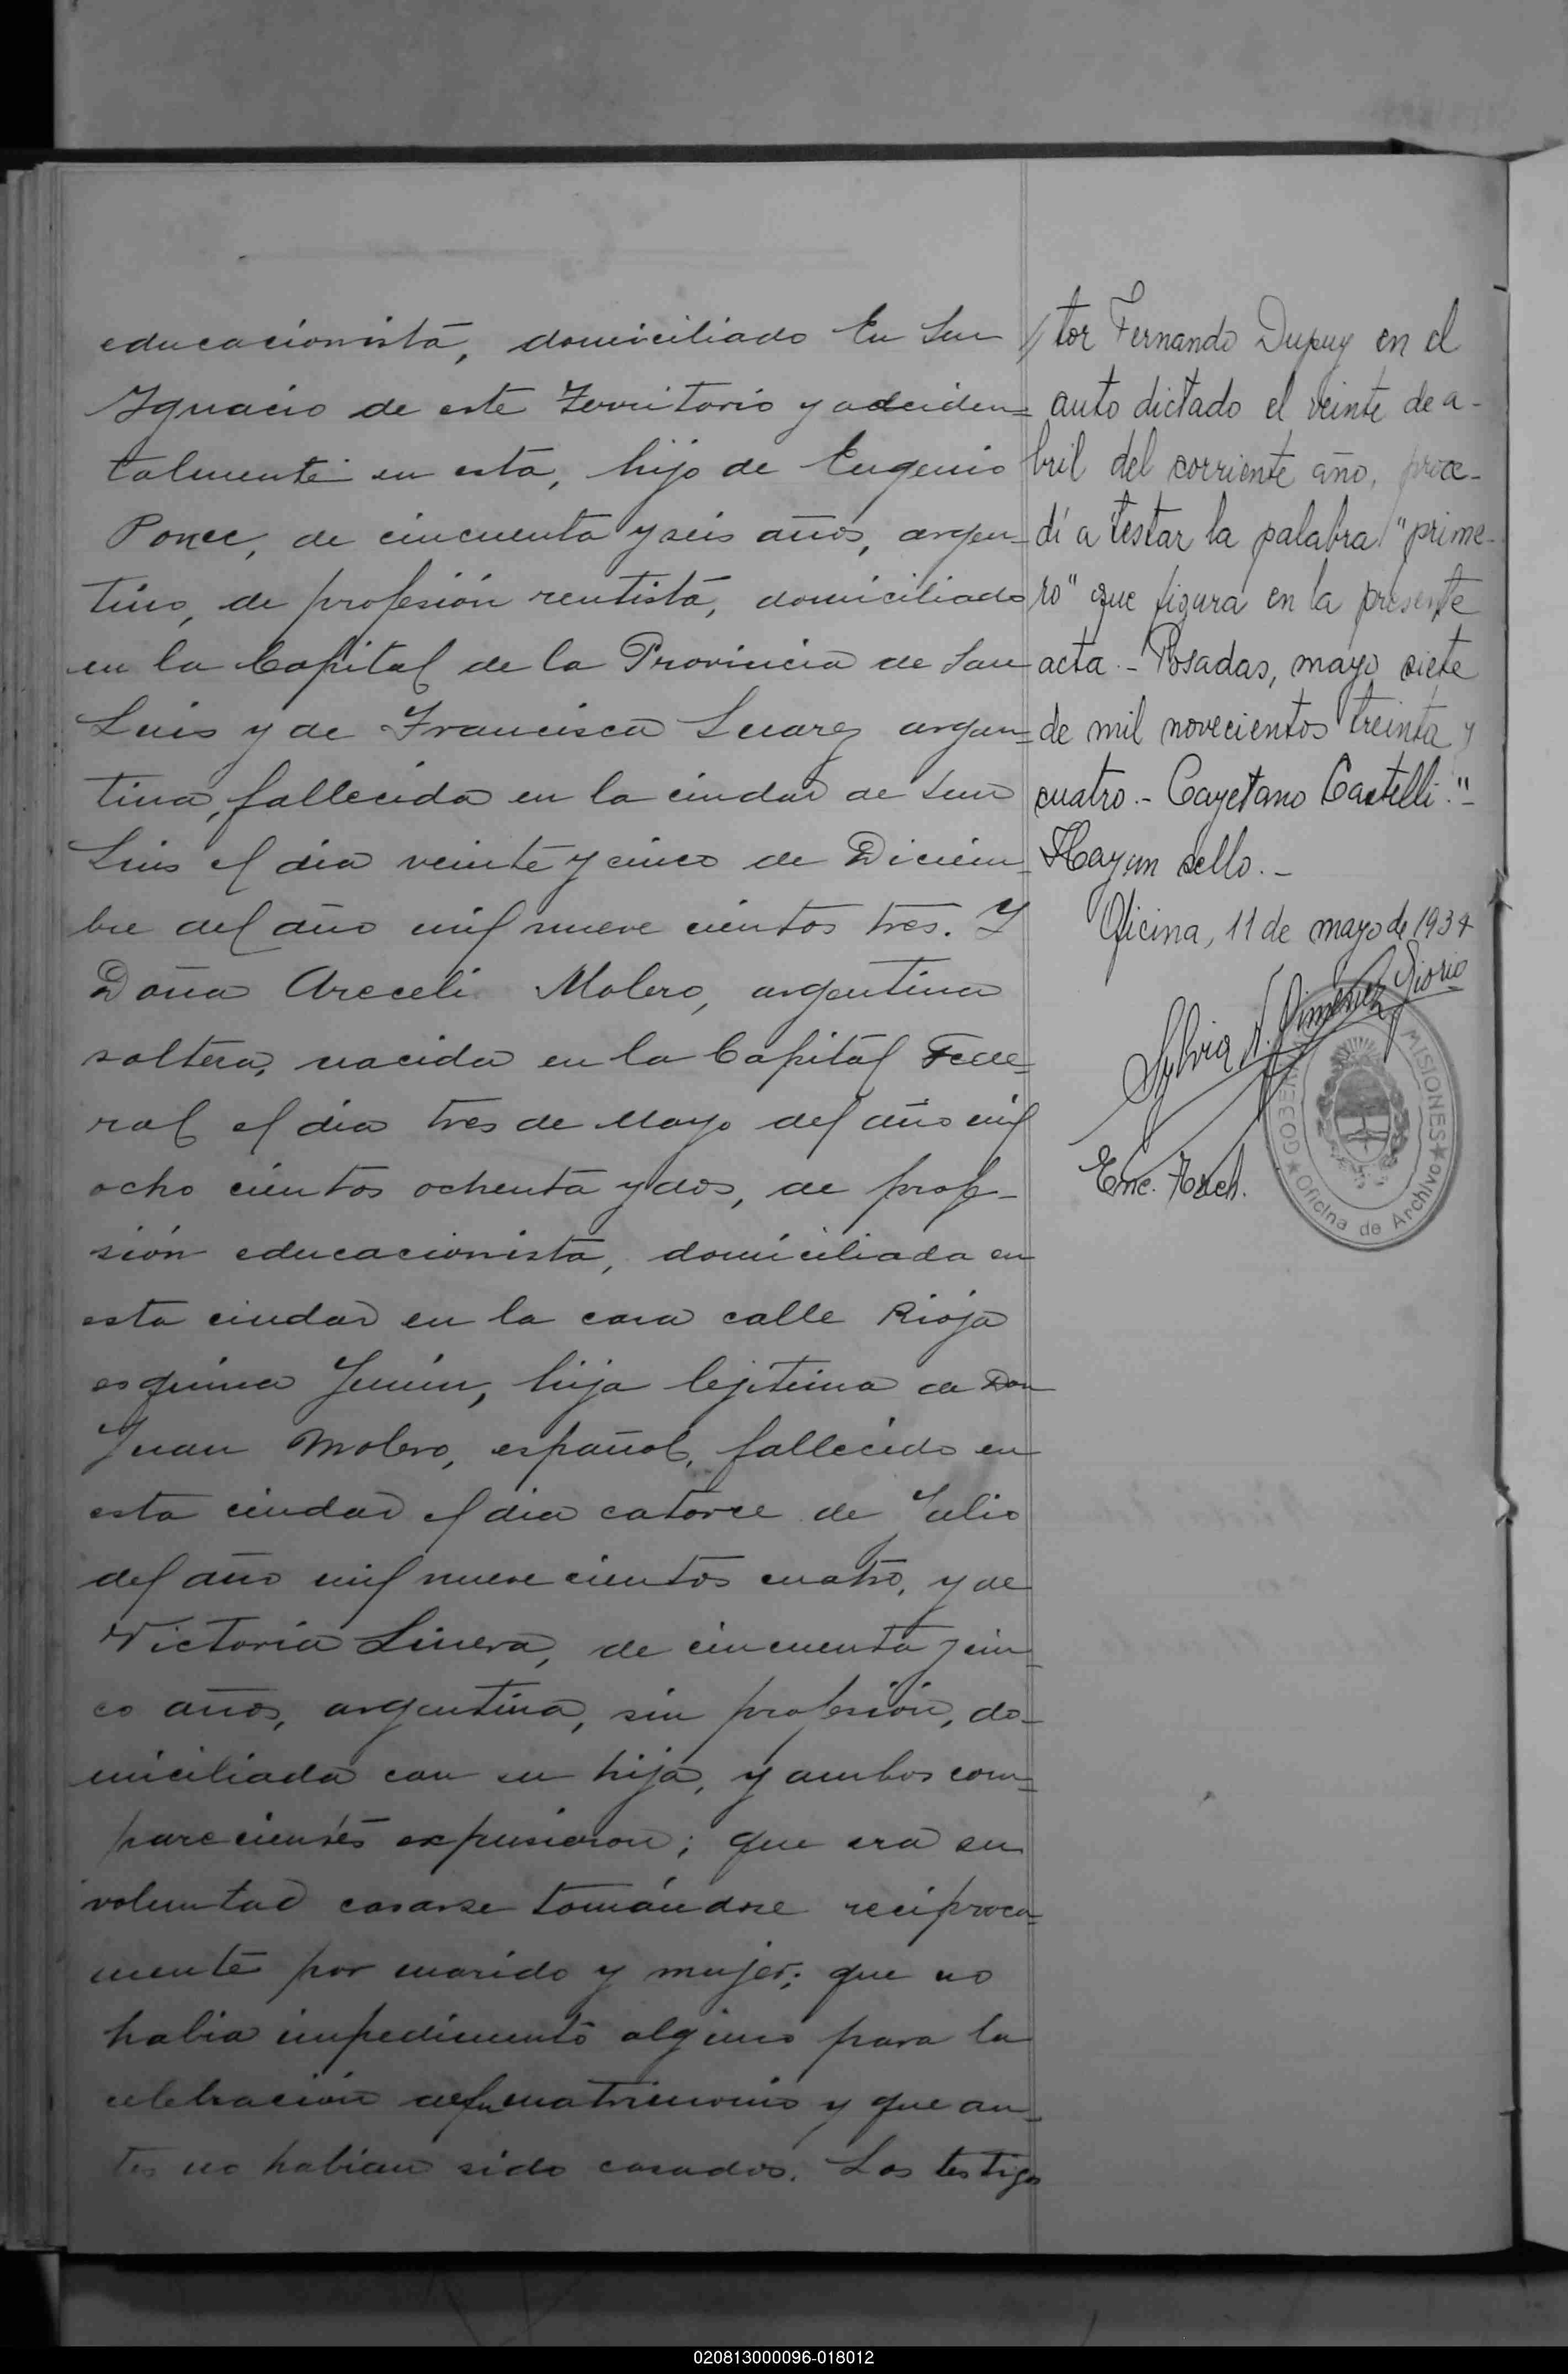 educacionista, domiciliado En San
Ygnacio de este Territorio y acciden=
talmente en esta, hijo de Eugenio
Ponce, de cincuenta y seis años, argen=
tino, de profesión rentista, domiciliado
en la Capital de la Provincia de San
Luis y de Francisca Suarez argen=
tina, fallecida en la ciudad de San
Luis el dia veinte y cinco de Diciem=
bre del año mil nueve cientos tres. Y
Doña Areceli Molero, argentina
soltera, nacida en la Capital Fede=
ral el dia tres de Mayo del año mil
ocho cientos ochenta y dos, de profe-
sión educacionista, domiciliada en
esta ciudad en la casa calle Rioja
esquina Junin, hija lejitima de Don
Juan Molero, español, fallecido en
esta ciudad el dia catorce de Julio
del año mil nueve cientos cuatro, y de
Victoria Linera, de cincuenta y cin=
co años, argentina, sin profesión, do-
miciliada con su hija, y ambos com=
parecientes expusieron; que era su
voluntad casarse tomándose reciproca=
mente por marido y mujer; que no
habia impedimento alguno para la
celebración del matrimonio y que an-
tes no habian sido casados. Los testigos
//tor Fernando Dupuy en el
auto dictado el veinte de a-
bril del corriente año, proce-
dí a testar la palabra "prime-
ro" que figura en la presente
acta.- Posadas, mayo siete
de mil novecientos treinta y
cuatro.- Cayetano Castelli."-
Hay un sello.-
Oficina, 11 de mayo de 1934
Sylvia N. Gimenez Giorio
Enc. Arch.
MISIONES
Oficina de Archivo
020813000096-018012